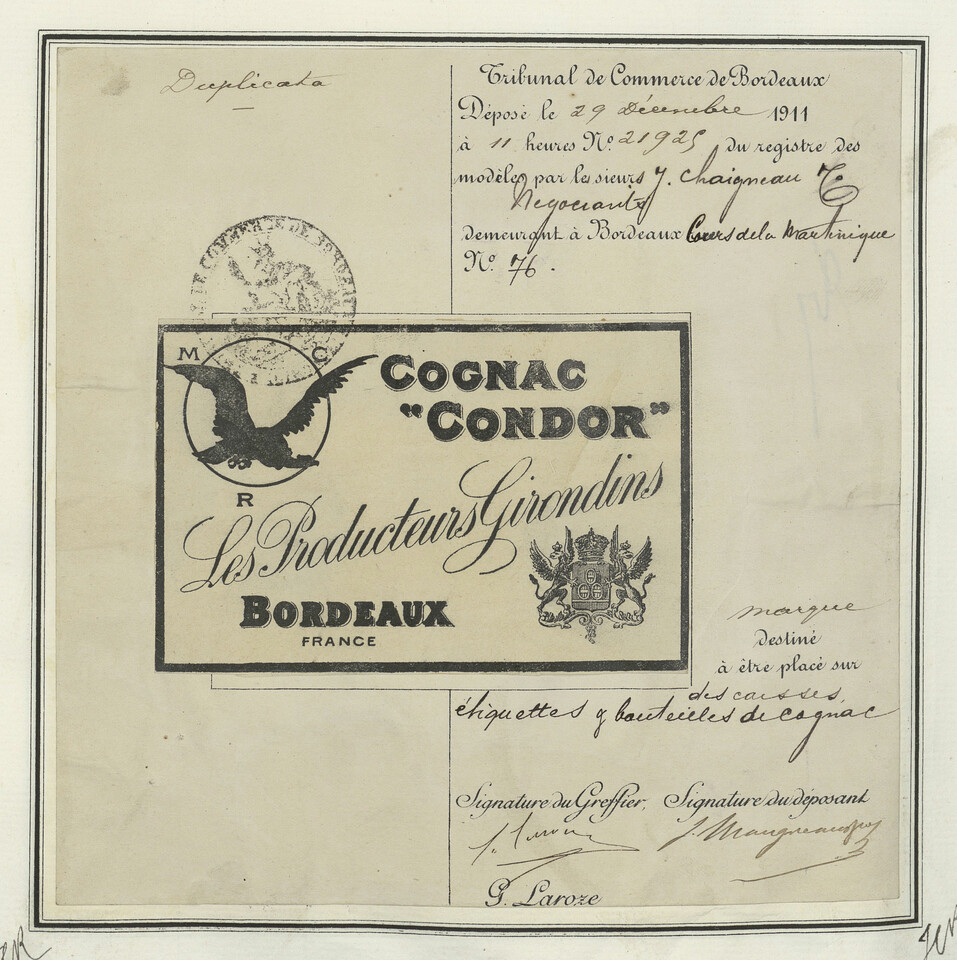 Duplicata
Tribunal de Commerce de Bordeaux
Déposé le 29 Décembre 1911
à 11 heures No. 21925 du registre des
modèles par les sieurs J. Chaigneau &
Negociants
demeurant à Bordeaux Cours de la Martinique
No. 76.
DE COMMERCE DE BORDEAUX
M C
R
COGNAC
"CONDOR"
Les Producteurs Girondins
BORDEAUX
FRANCE
marque
destiné
à être placé sur
des caisses,
étiquettes & bouteilles de cognac
Signature du Greffier, Signature du déposant
G. Laroze